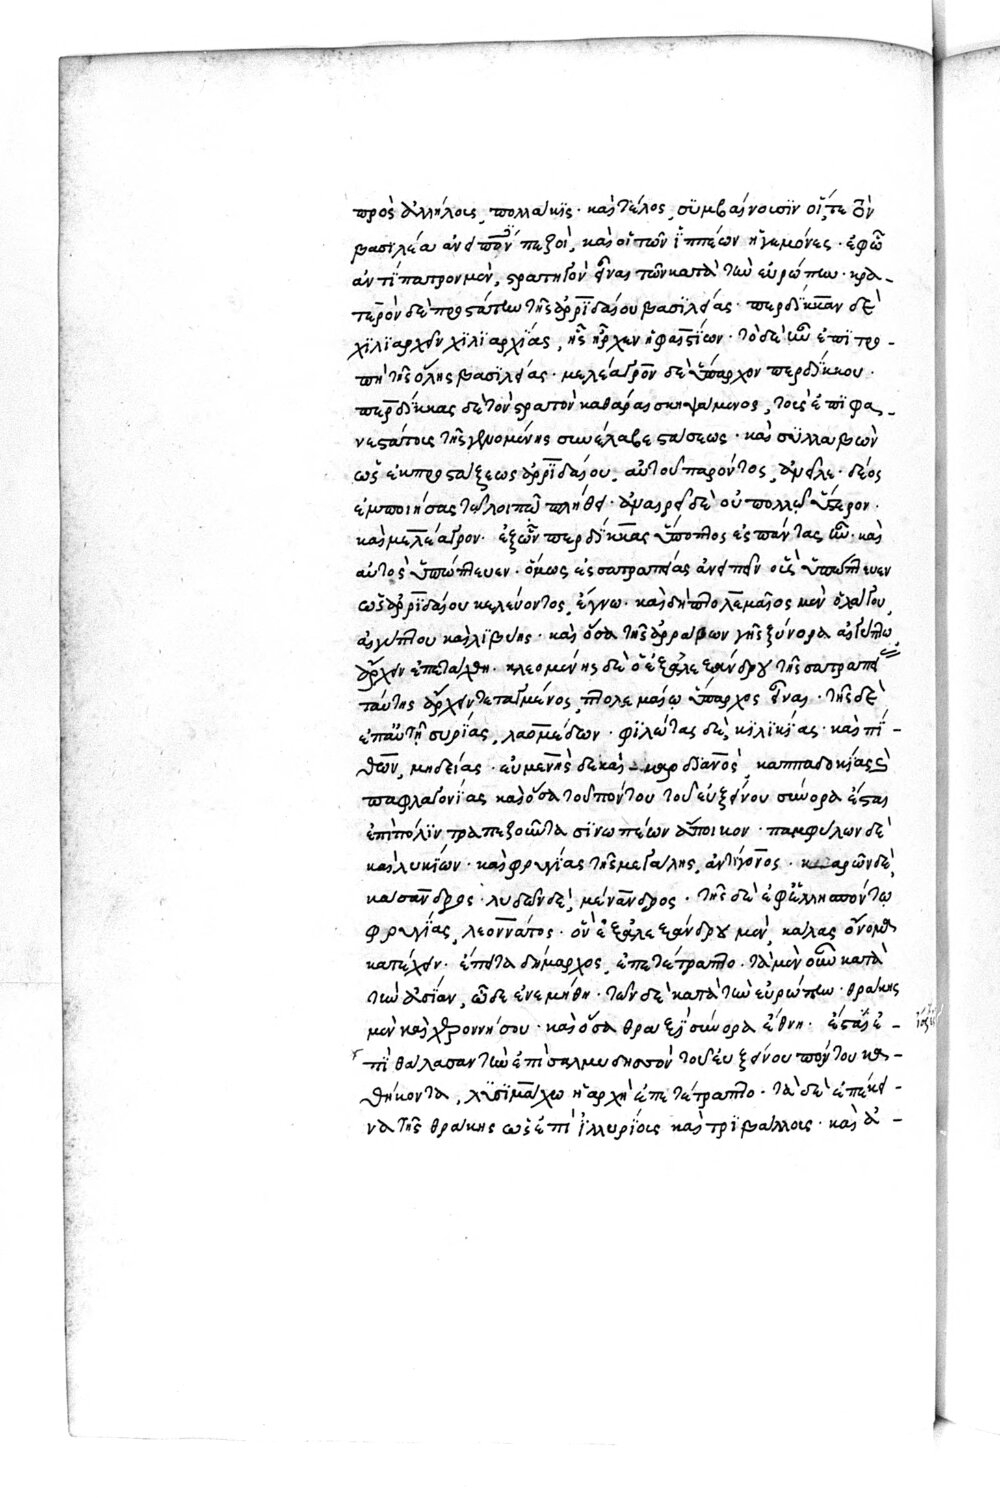 πρὸς ἀλλήλοις πολλάκις· καὶ τέλος συμβαίνουσιν οἵ τε τὸν
βασιλέα ἀνειπόν πεζοὶ, καὶ οἱ τῶν ἱππέων ἡγεμόνες· ἐφ' ὧ
ἀντίπατρον μὲν, στρατηγὸν εἶναι τῶν κατὰ τὴν εὐρώπην· κρα-
τερὸν δὲ προστάτην τῆς ἀρριδαίου βασιλείας· περδίκκαν δὲ
χιλιαρχεῖν χιλιαρχίας, ἧς ἦρχεν ἡφαιστίων· τὸ δὲ ἦν ἐπιτρο-
πὴ τῆς ὅλης βασιλείας· μελέαγρον δὲ ὕπαρχον περδίκκου·
περδίκκας δὲ τὸν στρατὸν καθᾶραι σκηψάμενος, τοὺς ἐπιφα-
νεστάτους τῆς γενομένης συνέλαβε στάσεως· καὶ συλλαβὼν
ὡς ἐκ προστάξεως ἀρριδαίου αὐτοῦ παρόντος, ἀνεῖλε· δέος
ἐμποιήσας τῶ λοιπῶ πλήθει· ἀναιρεῖ δὲ οὐ πολλῶ ὕστερον
καὶ μελέαγρον· ἐξ ὧν περδίκκας ὕποπτος ἐς πάντας ἦν· καὶ
αὐτὸς ὑπώπτευεν· ὅμως ἐς σατραπείας ἀνειπεῖν οὓς ὑπώπτευεν
ὡς ἀρριδαίου κελεύοντος, ἔγνω· καὶ δὴ πτολεμαῖος μὲν ὁ λάγου
αἰγύπτου καὶ λιβύης· καὶ ὅσα τῆς ἀρράβων γῆς ξύνορα αἰγύπτω
ἄρχειν ἐπετάχθη· κλεομένης δὲ ὁ ἐξ ἀλεξάνδρου τῆς σατραπεί
ταύτης ἄρχειν τεταγμένος, πτολεμαίω ὕπαρχος εἶναι· τῆς δὲ
ἐπ' αὐτῇ συρίας, λαομέδων· φιλώτας δὲ, κιλικίας· καὶ πί-
θων, μηδείας· εὐμένης δὲ καρδιανὸς, καππαδοκίας
παφλαγονίας καὶ ὅσα τοῦ πόντου τοῦ εὐξείνου σύνορα ἔσται
ἐπὶ πόλιν τραπεζοῦντα σινωπέων ἄποικον· παμφύλων δὲ
καὶ λυκίων· καὶ φρυγίας τῆς μεγάλης, ἀντίγονος· καρῶν δὲ,
κάσανδρος· λυδῶν δὲ, μένανδρος· τῆς δὲ ἐφ' ἑλλησπόντω
φρυγίας, λεοννάτος· ὃν ἐξ ἀλεξάνδρου μὲν, κάλας ὄνομα
κατέχειν· ἔπειτα δήμαρχος, ἐπετέτραπτο· τὰ μὲν οὖν κατὰ
τὴν ἀσίαν, ὧδε ἐνεμήθη· τῶν δὲ κατὰ τὴν εὐρώπην· θράκης
μὲν καὶ χερρονήσου· καὶ ὅσα θραξὶ σύνορα ἔθνη· ἔστε ἐ-
πὶ θάλασσαν τὴν ἐπὶ σαλμυδησσὸν τοῦ εὐξείνου πόντου κα-
θήκοντα, λυσιμάχω ἡ ἀρχὴ ἐπετέτραπτο· τὰ δὲ ἐπέκει-
να τῆς θράκης ὡς ἐπὶ ἰλλυριοὺς καὶ τριβαλλοὺς· καὶ ἀ-